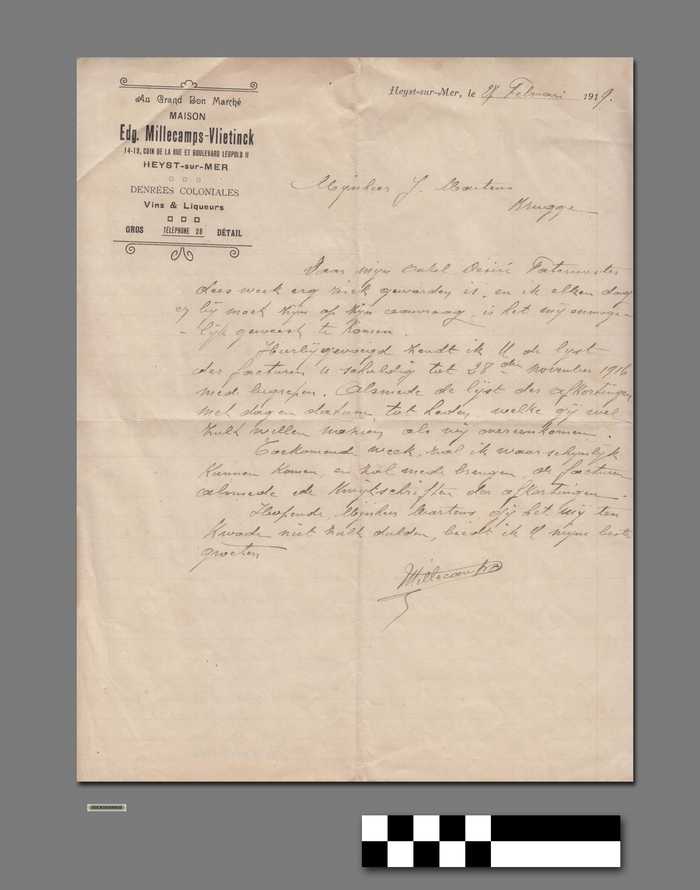 Au Grand Bon Marché
MAISON
Edg. Millecamps-Vlietinck
14-19, COIN DE LA RUE ET BOULEVARD LEOPOLD II
HEYST-sur-MER
DENRÉES COLONIALES
Vins & Liqueurs
GROS TÉLÉPHONE 28 DÉTAIL
Heyst-sur-Mer, le 27 Februari 1919.
Mijnheer J. Martens
Brugge
Daar mijn onkel Désiré
dees week erg ziek geworden is, en ik elken dag
bij moet zijn op zijn aanvraag, is het mij onmoge-
lijk geweest te komen.
Hierbijgevoegd zendt ik U de lijst
der facturen U schuldig tot 28sten november 1916
med begrepen. Alsmede de lijst der afkortingen
met dag en datum tot heden, welke gij wel
zult willen nazien als wij overeenkomen.
Toekomende week, zal ik waarschijnlijk
kunnen komen, en zal mede brengen, de facturen
alsmede de kwijtschriften der afkortingen.
Hopende, Mijnheer Martens gij het mij ten
kwade niet zult duiden, biedt ik U mijne beste
groeten
Millecamps